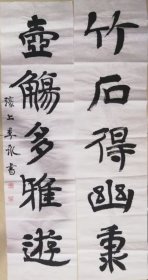 竹石得幽秉
壺觴多雅遊